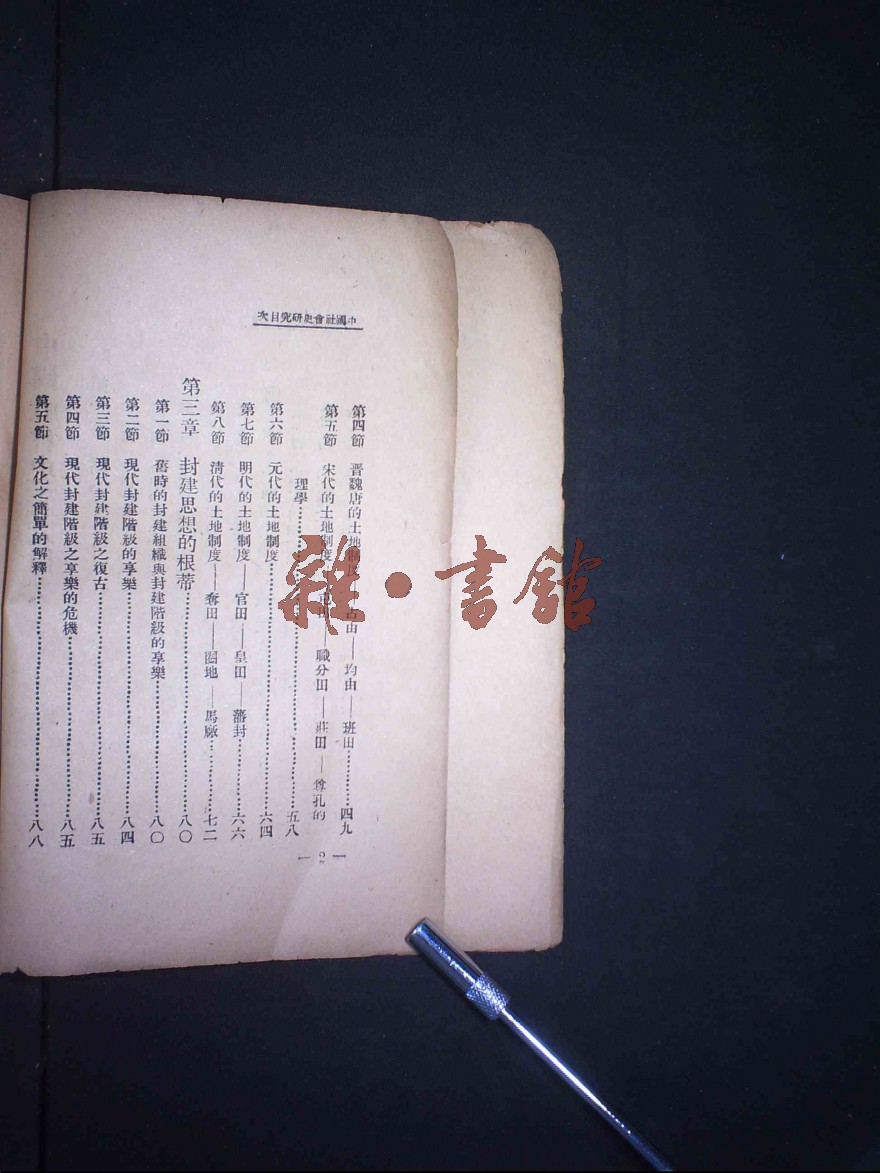 中國社會史研究目次
第四節 晋魏唐的土地制度 占由——均由——班田…………四九
第五節 宋代的土地制度 ——職分田——莊田——尊孔的
理學…………五八
第六節 元代的土地制度…………六四
第七節 明代的土地制度——官田——皇田——藩封…………六六
第八節 清代的土地制度——奪田——圈地——馬廠…………七二
第三章 封建思想的根蒂…………八〇
第一節 舊時的封建組織與封建階級的享樂…………八〇
第二節 現代封建階級的享樂…………八四
第三節 現代封建階級之復古…………八五
第四節 現代封建階級之享樂的危機…………八五
第五節 文化之簡單的解釋…………八八
— 2 —
雜·書館